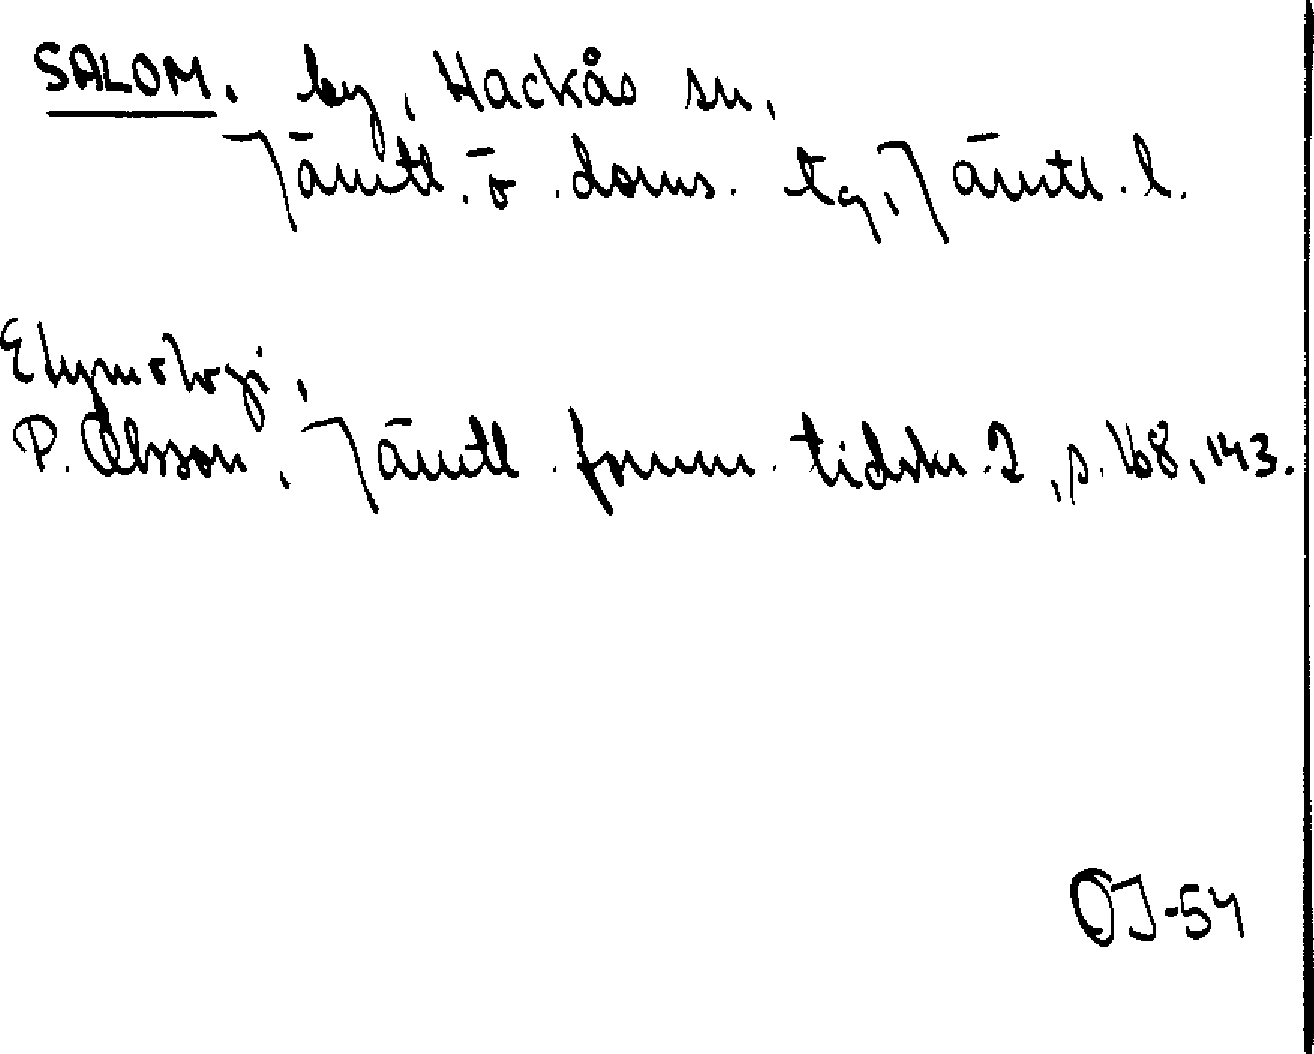 SALOM. by, Hackås sn,
Jämtl. ö. doms. tg, Jämtl. l.
Etymologi,
P. Olsson, Jämtl. fornm. tidskr. 2, s. 168, 143.
OJ-54